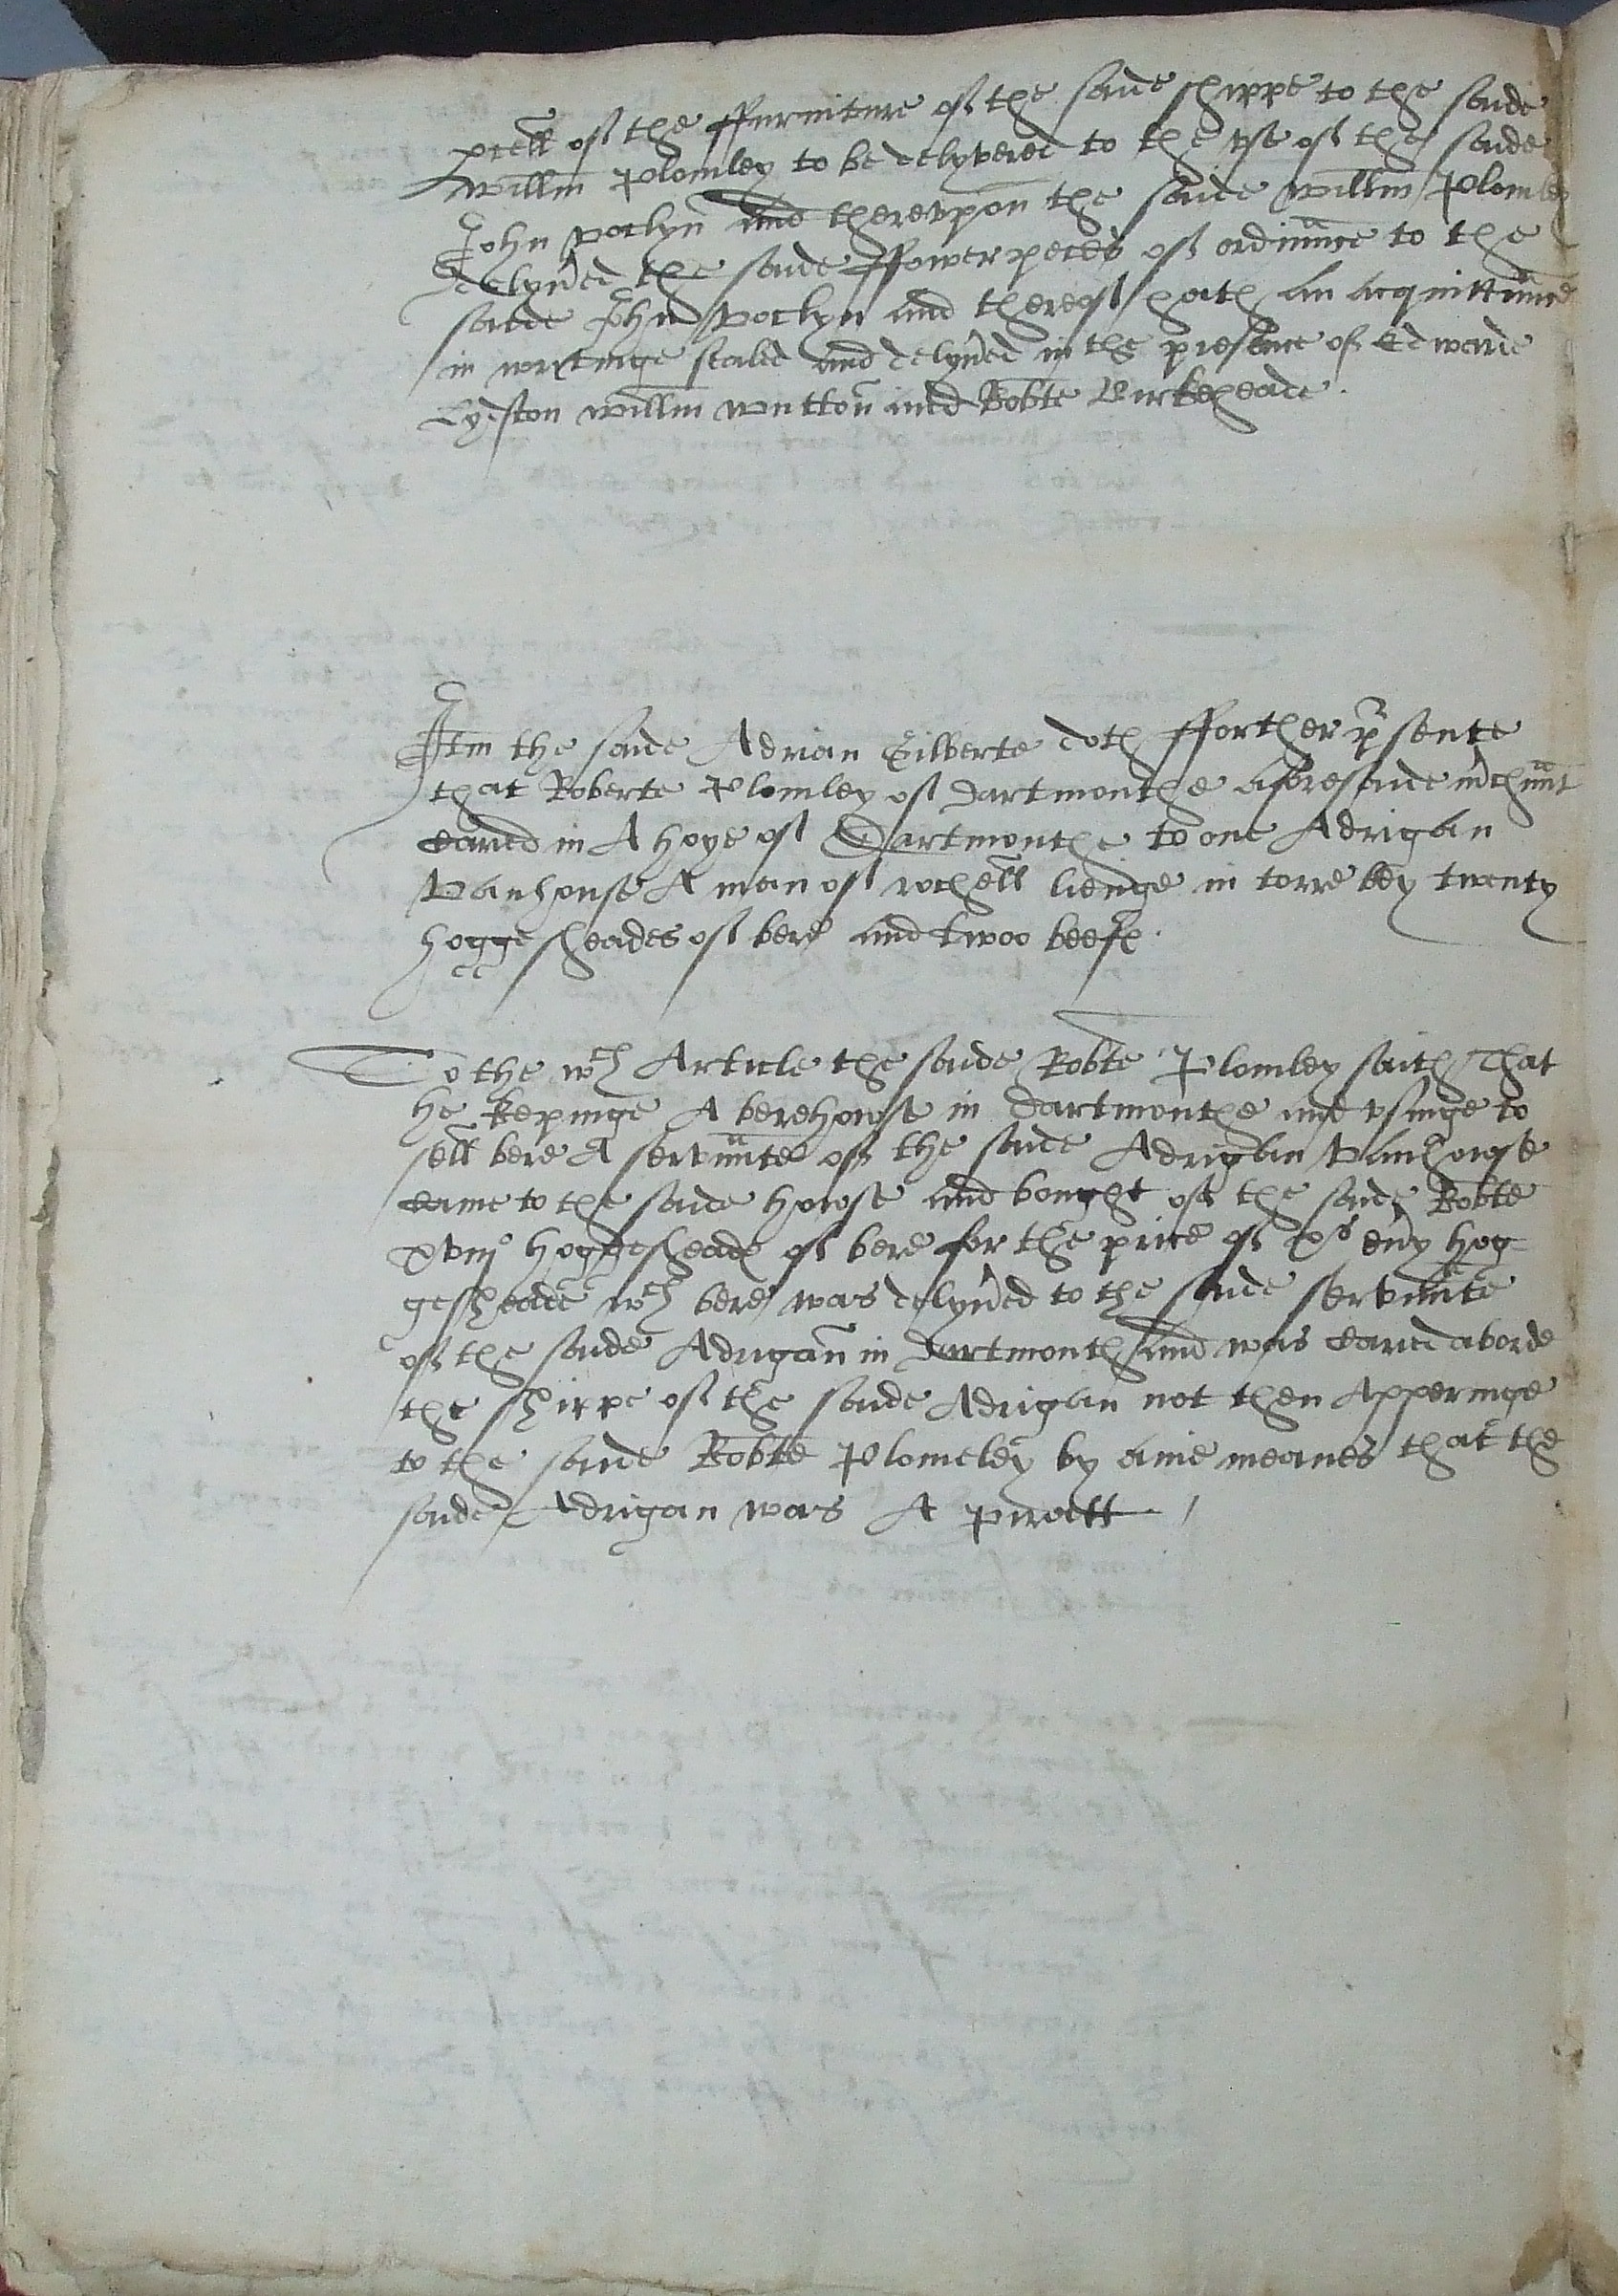 pcell of the ffurniture of the saide shippe to the saide
Willm Plomley to be delyvered to the vse of the saide
John Voclyn and therevpon the saide Willm Plomley
delyv'ed the saide ffower peces of ordinnce to the
saide John Voclyn and thereof hath an acquittnce
in writinge sealed and delyv'ed in the presence of Edwarde
Willm Wutton and Robte Birkeheade.
Itm the saide Adrian Gilberte doth fforther p'sente
that Roberte Plomley of Dartmouthe aforesaide m'chnt
caried in A hoye of Dartmouthe to one Adrigan
Vanhouse A man of rochell lienge in torre bey twenty
hoggesheades of bere and twoo beefes.
To the wch Article the saide Robte Plomley saith That
he kepinge A berehowse in Dartmouthe and vsinge to
sell bere A servnnte of the saide Adrigan Vanhowse
came to the saide howse and bought of the saide Robte
xviijo hoggesheades of bere for the price of xs eu'y hog-
gesheade wch bere was delyv'ed to the saide servnnte
of the saide Adrigan in Dartmouth and was caried aborde
the shippe of the saide Adrigan not then Apperinge
to the saide Robte Plomeley by anie meanes that the
saide Adrigan was A piratt /